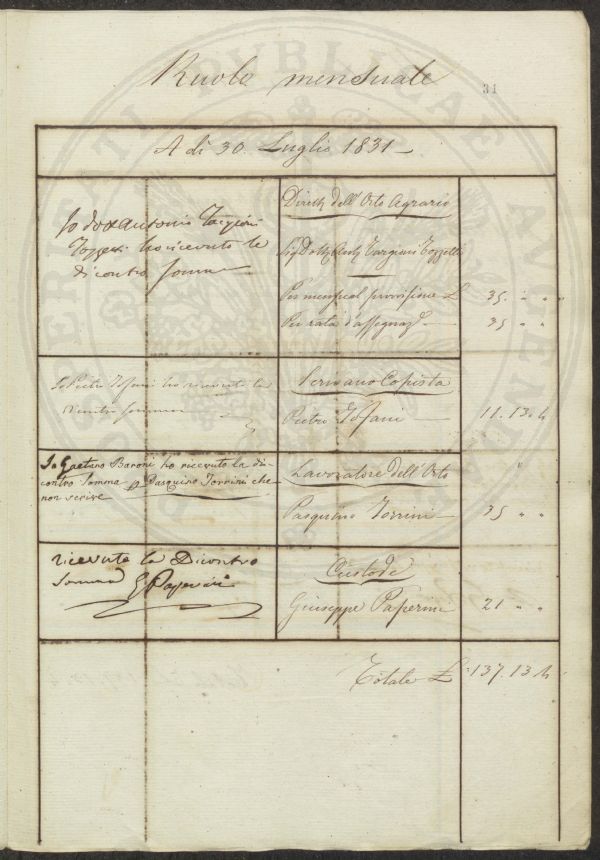 Ruolo mensuale
31
A di 30. Luglio 1831
Io Dor Antonio Targioni
Tozzetti ho ricevuto le
dicontro somme
Dirett. dell'Orto Agrario
Sig. Dott. Ant. Targioni Tozzetti
Per mensual provvisione £ 35. " "
Per rata d'assegnaz. 35 " "
Io Pietro Tofani ho ricevuto la
dicontro somma
Scrivano Copista
Pietro Tofani 11. 13. 4
Io Gaetano Baroni ho ricevuto la di
contro somma p. Pasquino Torrini che
non scrive
Lavoratore dell'Orto
Pasquino Torrini 35 " "
ricevuto la Dicontro
Somma G Paperini
Custode
Giuseppe Paperini 21 " "
Totale £ 137. 13. 4